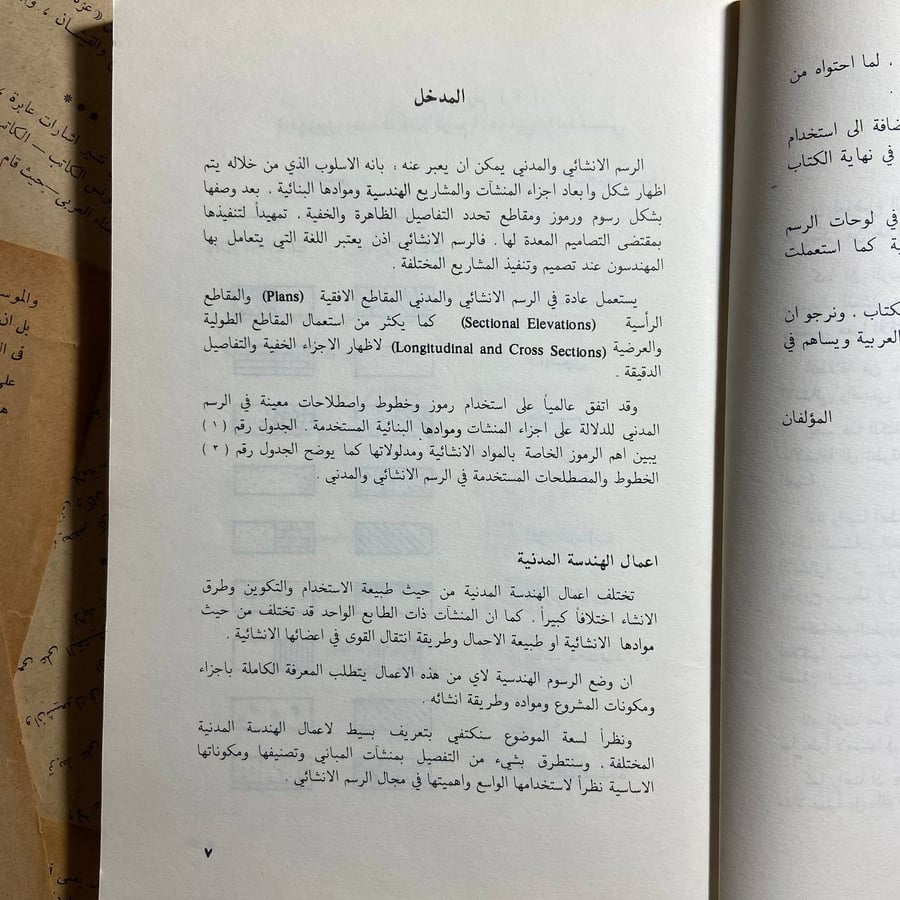 المدخل
الرسم الانشائي والمدني يمكن ان يعبر عنه : بانه الاسلوب الذي من خلاله يتم
اظهار شكل وابعاد اجزاء المنشآت والمشاريع الهندسية وموادها البنائية . بعد وصفها
بشكل رسوم ورموز ومقاطع تحدد التفاصيل الظاهرة والخفية . تمهيداً لتنفيذها
بمقتضى التصاميم المعدة لها . فالرسم الانشائي اذن يعتبر اللغة التي يتعامل بها
المهندسون عند تصميم وتنفيذ المشاريع المختلفة .
يستعمل عادة في الرسم الانشائي والمدني المقاطع الافقية (Plans) والمقاطع
الرأسية (Sectional Elevations) كما يكثر من استعمال المقاطع الطولية
والعرضية (Longitudinal and Cross Sections) لاظهار الاجزاء الخفية والتفاصيل
الدقيقة .
وقد اتفق عالمياً على استخدام رموز وخطوط واصطلاحات معينة في الرسم
المدني للدلالة على اجزاء المنشآت وموادها البنائية المستخدمة . الجدول رقم ( ١ )
يبين اهم الرموز الخاصة بالمواد الانشائية ومدلولاتها كما يوضح الجدول رقم ( ٢ )
الخطوط والمصطلحات المستخدمة في الرسم الانشائي والمدني .
اعمال الهندسة المدنية
تختلف اعمال الهندسة المدنية من حيث طبيعة الاستخدام والتكوين وطرق
الانشاء اختلافاً كبيراً . كما ان المنشآت ذات الطابع الواحد قد تختلف من حيث
موادها الانشائية او طبيعة الاحمال وطريقة انتقال القوى في اعضائها الانشائية .
ان وضع الرسوم الهندسية لاي من هذه الاعمال يتطلب المعرفة الكاملة باجزاء
ومكونات المشروع ومواده وطريقة انشائه .
ونظراً لسعة الموضوع سنكتفي بتعريف بسيط لاعمال الهندسة المدنية
المختلفة . وسنتطرق بشيء من التفصيل بمنشآت المباني وتصنيفها ومكوناتها
الاساسية نظراً لاستخدامها الواسع واهميتها في مجال الرسم الانشائي .
٧
. لما احتواه من
ضافة الى استخدام
في نهاية الكتاب
في لوحات الرسم
ية كما استعملت
كتاب . ونرجو ان
العربية ويساهم في
المؤلفان
والقيشان
تشير اشارات عابرة
الكاتب – الكاتب
العربي – حيث قام
والموس
بل ان
في ال
على